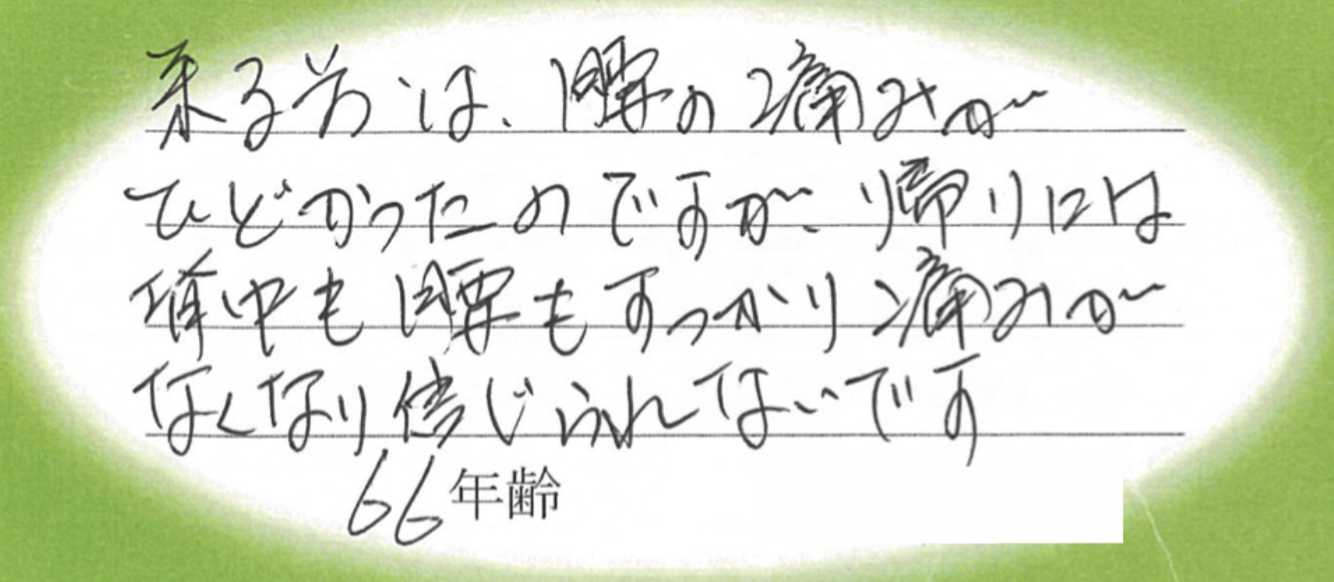 来る前は、腰の痛みが
ひどかったのですが、帰りには
背中も腰もすっかり痛みが
なくなり信じられないです
66年齢